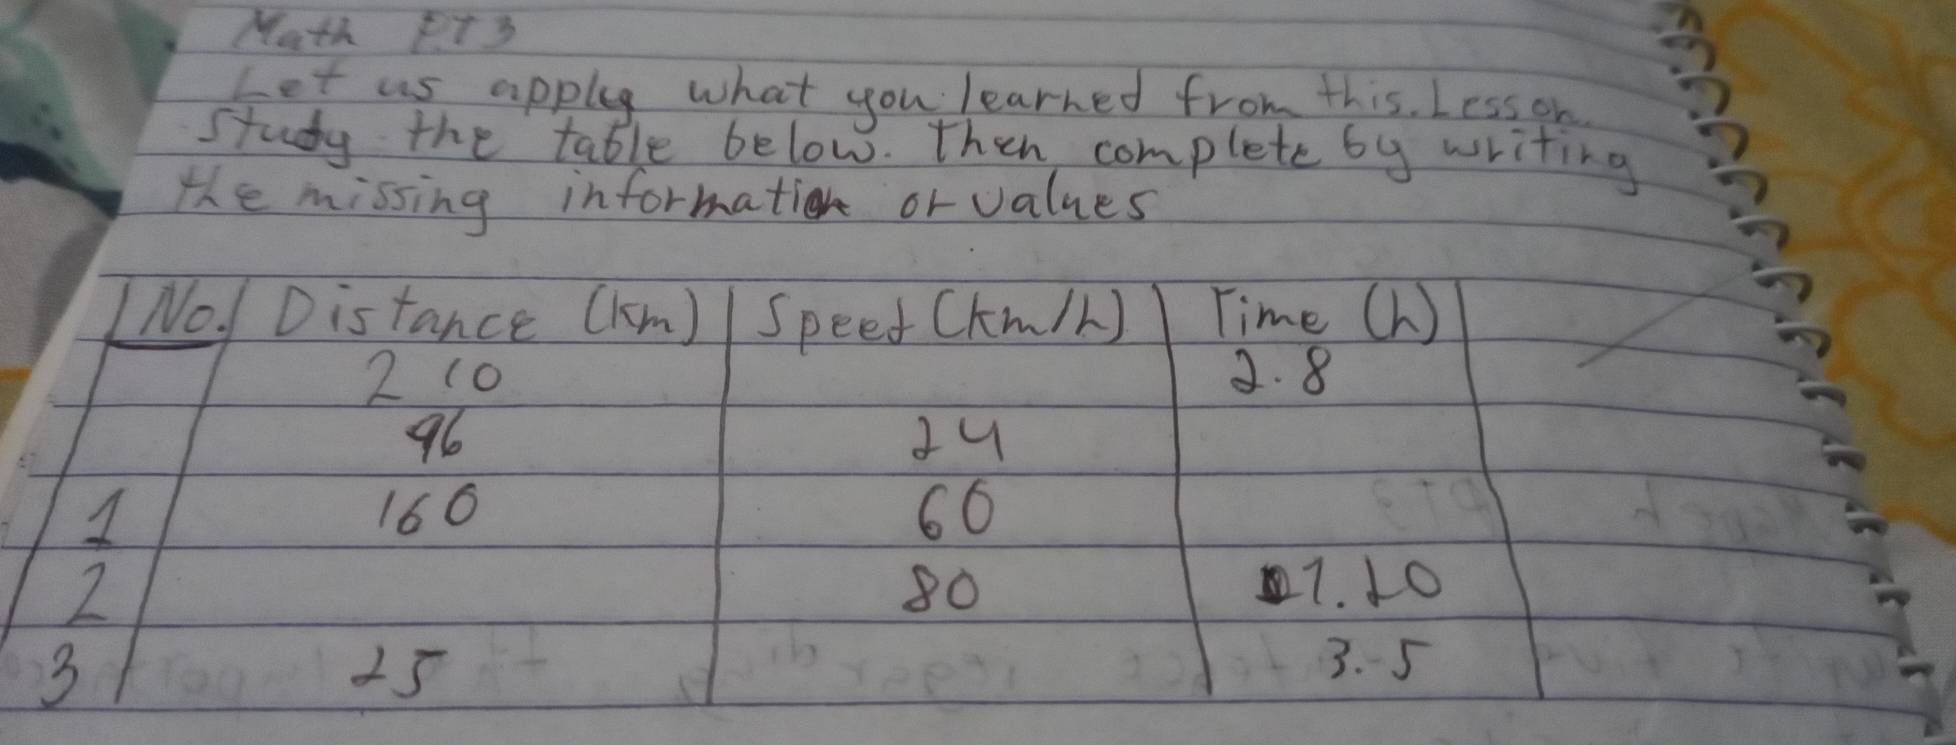 Math PT3
Let us apply what you learned from this. Lesson.
Study the table below. Then complete by writing
the missing information or values
No. Distance (km) Speed (km/h) Time (h)
210 2.8
96 24
1 160 60
2 80 1.20
3 25 3.5